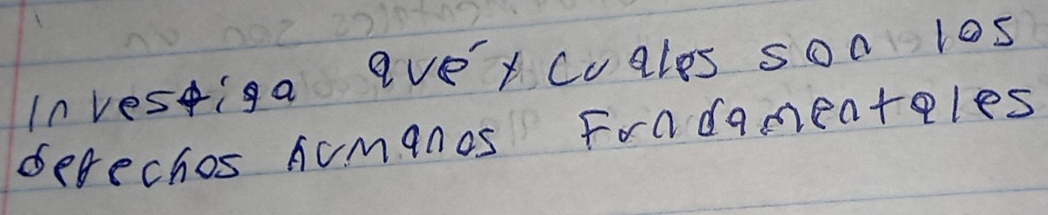 Investiga qué y cuales son los
derechos humanos Fundamentales